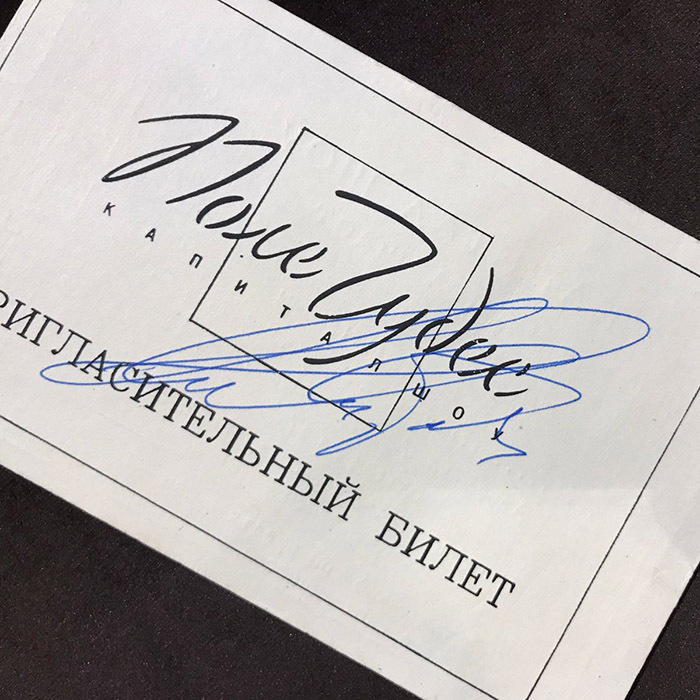 Поле Чудес
КАПИТАЛ ШОУ
РИГЛАСИТЕЛЬНЫЙ БИЛЕТ